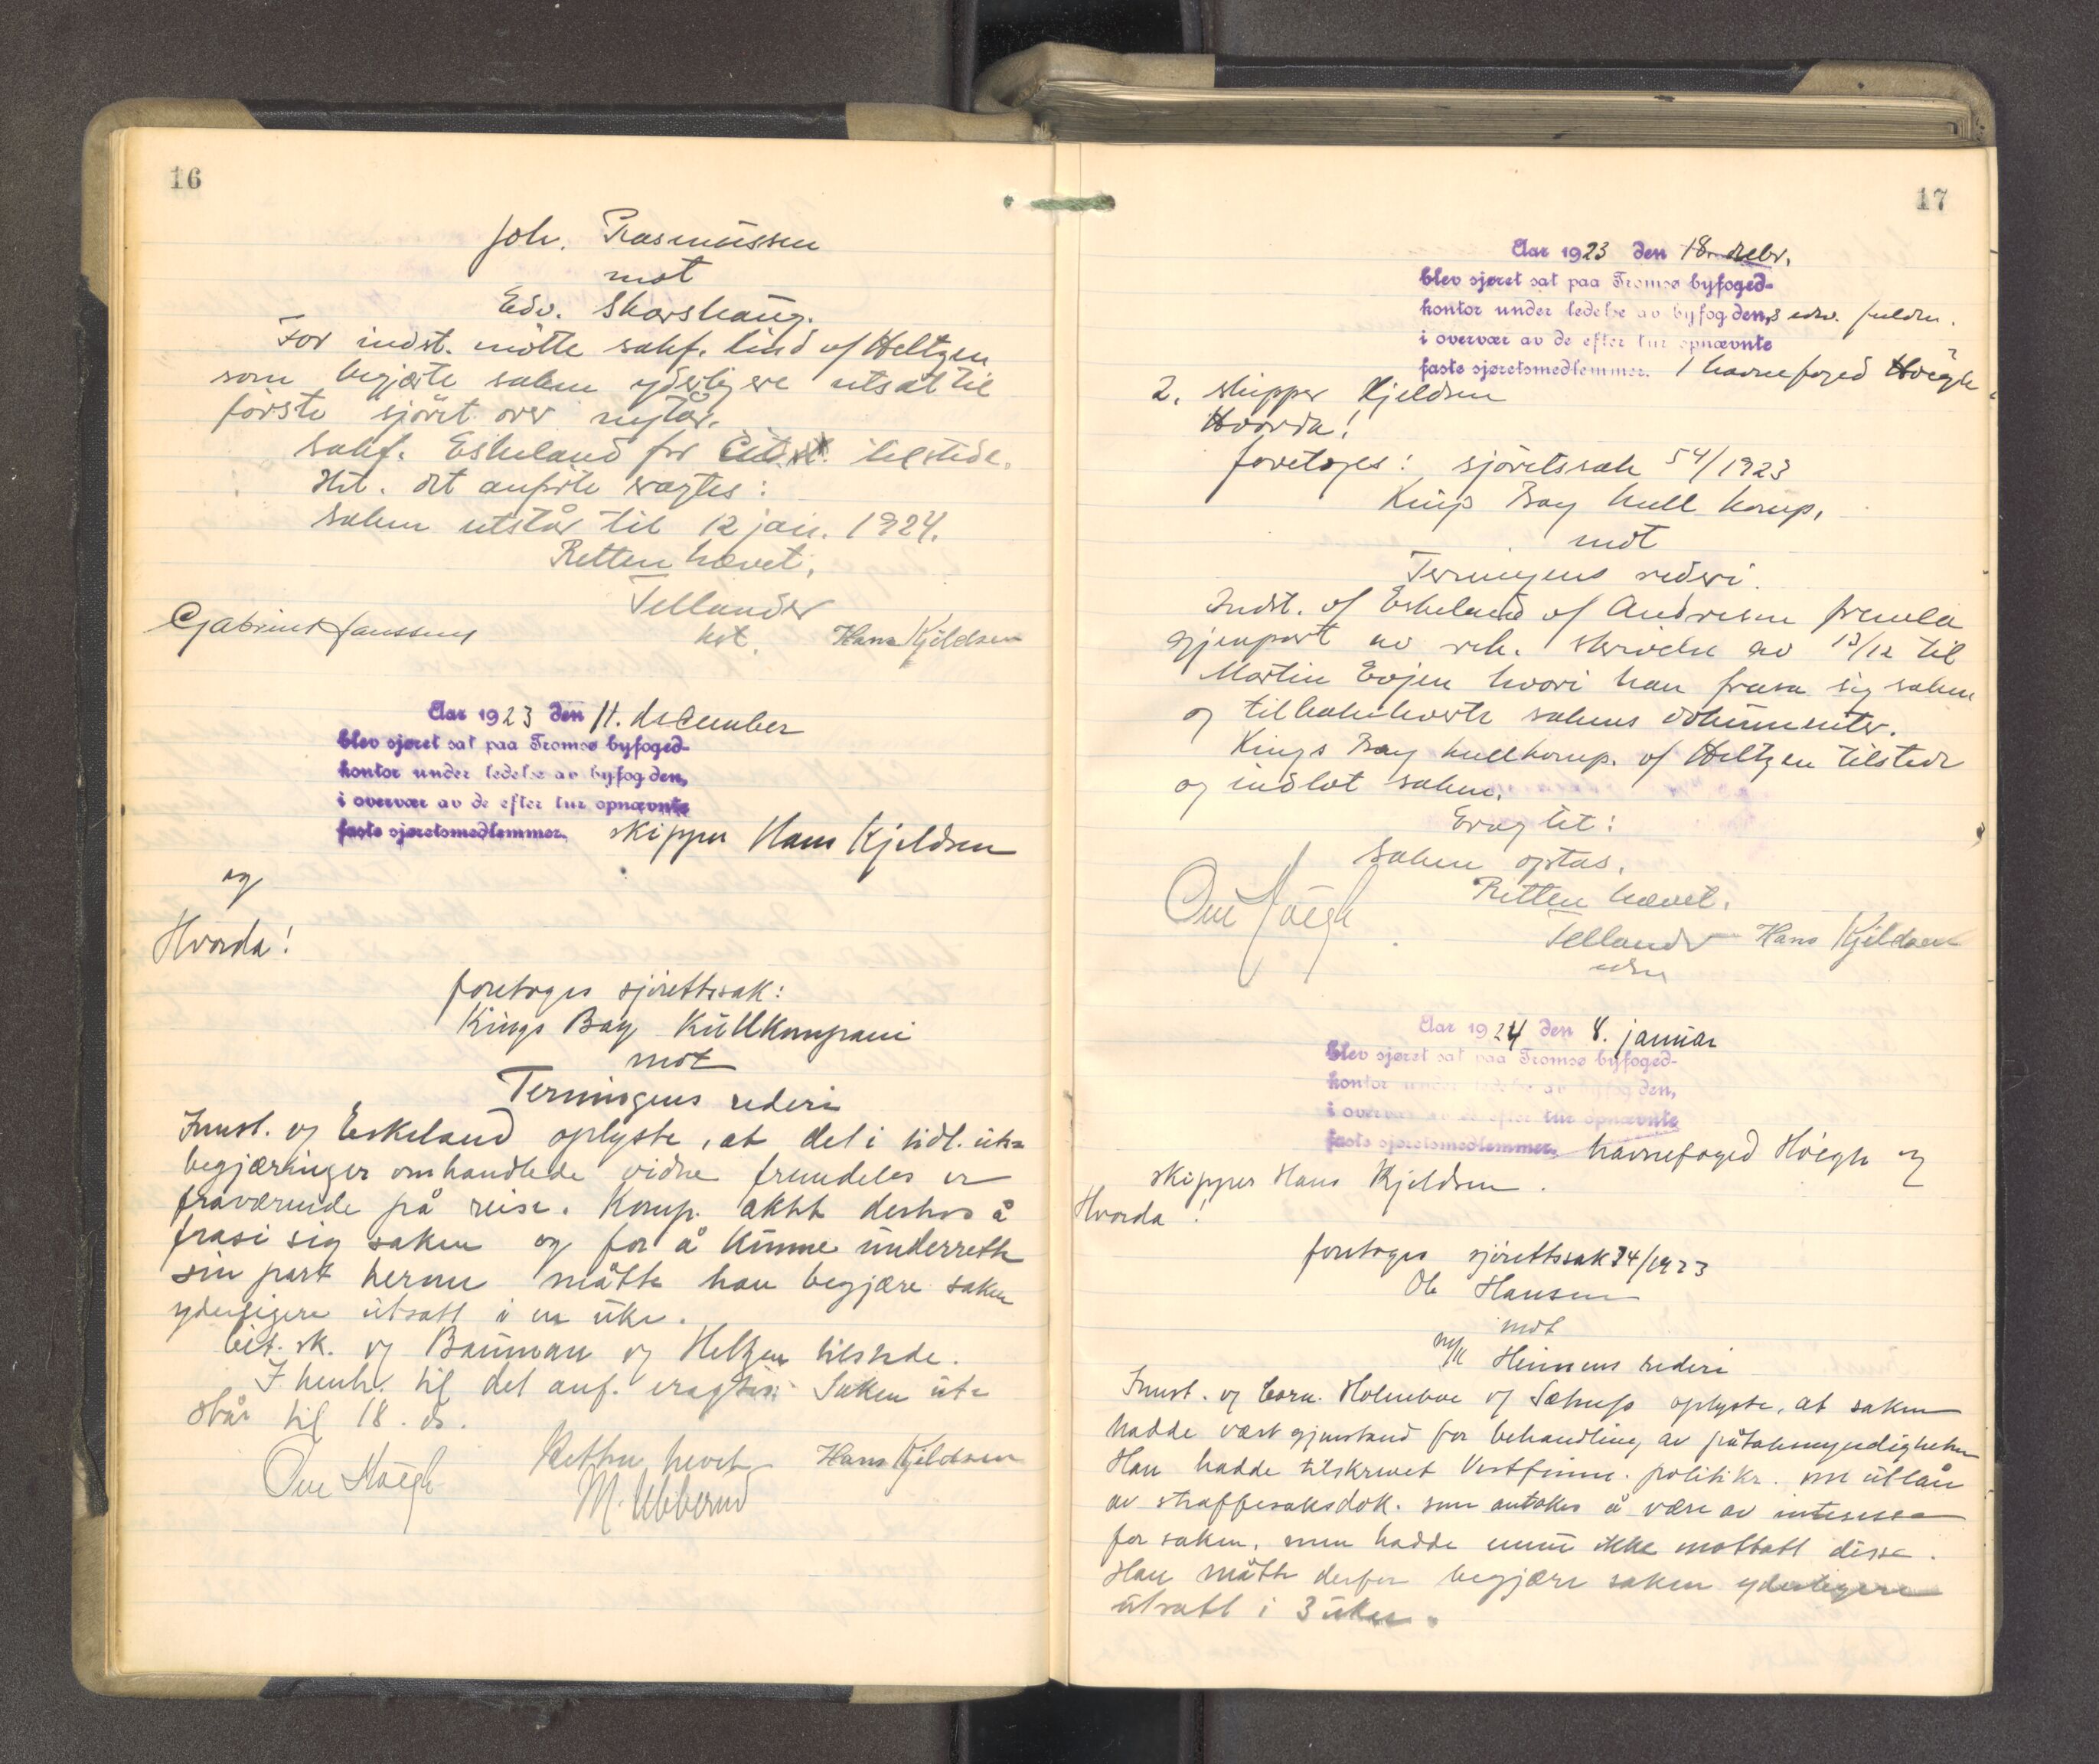 16
Joh. Rasmussen
mot
Edv. Skorshaug.
For indst. møtte sakf. Lind v/ Heltzen
som begjærte saken yderligere utsat til
første sjöret over nytår.
Sakf. Eskeland for Cit. tilstede.
Iht. det anførte eragtes:
Saken utstår til 12 jan. 1924.
Retten hævet.
Tellander
kst.
Gabriel Janssen
Hans Kjeldsen
Aar 1923 den 11. december
blev sjøret sat paa Tromsø byfoged-
kontor under ledelse av byfogden,
i overvær av de efter tur opnævnte
faste sjøretsmedlemmer. skipper Hans Kjeldsen
og
Hvorda!
foretoges sjörettssak:
Kings Bay Kullkompani
mot
Terningens rederi
Innst. v/ Eskeland oplyste, at det i tidl. uts.
begjæringer omhandlede vidne fremdeles er
fraværende på reise. Komp. aktet deshos å
frasi sig saken og for å kunne underrette
sin part herom måtte han begjære saken
yderligere utsatt i en uke.
Cit. sk. v/ Bauman v/ Heltzen tilstede.
I henh. til det anf. eragtes: Saken ut-
står til 18. ds.
Retten hevet
Ove Høegh
M. Ubberud
Hans Kjeldsen
17
Aar 1923 den 18. decbr.
blev sjøret sat paa Tromsø byfoged-
kontor under ledelse av byfogden, s edsv. fuldm.
i overvær av de efter tur opnævnte
faste sjøretsmedlemmer. 1 havnefoged Høegh
2. skipper Kjeldsen
Hvorda!
foretoges: sjöretssak 54/1923
Kings Bay kull komp.
mot
Terningens rederi.
Indst. v/ Eskeland v/ Andresen fremla
gjenpart av rek. skrivelse av 13/12 til
Martin Evjen hvori han frasa sig saken
og tilbakeleverte sakens dokumenter.
Kings Bay kullkomp. v/ Heltzen tilstede
og indlot saken.
Eragtet:
Saken optas.
Retten hævet.
Ove Høegh
Tellander
edsv
Hans Kjeldsen
Aar 1924 den 8. januar
blev sjøret sat paa Tromsø byfoged-
kontor under ledelse av byfogden,
i overvær av de efter tur opnævnte
faste sjøretsmedlemmer. havnefoged Höegh og
skipper Hans Kjeldsen.
Hvorda!
foretoges sjörettssak 34/1923
Ole Hansen
mot
m/k Heimens rederi
Innst. v/ Corn. Holmboe v/ Sætrup oplyste, at saken
hadde vært gjenstand for behandling av påtalemyndigheten
Han hadde tilskrevet Vestfinnm. politikr. om utlån
av straffesaksdok. som antokes å være av interesse
for saken, men hadde ennu ikke mottatt disse.
Han måtte derfor begjære saken yderligere
utsatt i 3 uker.